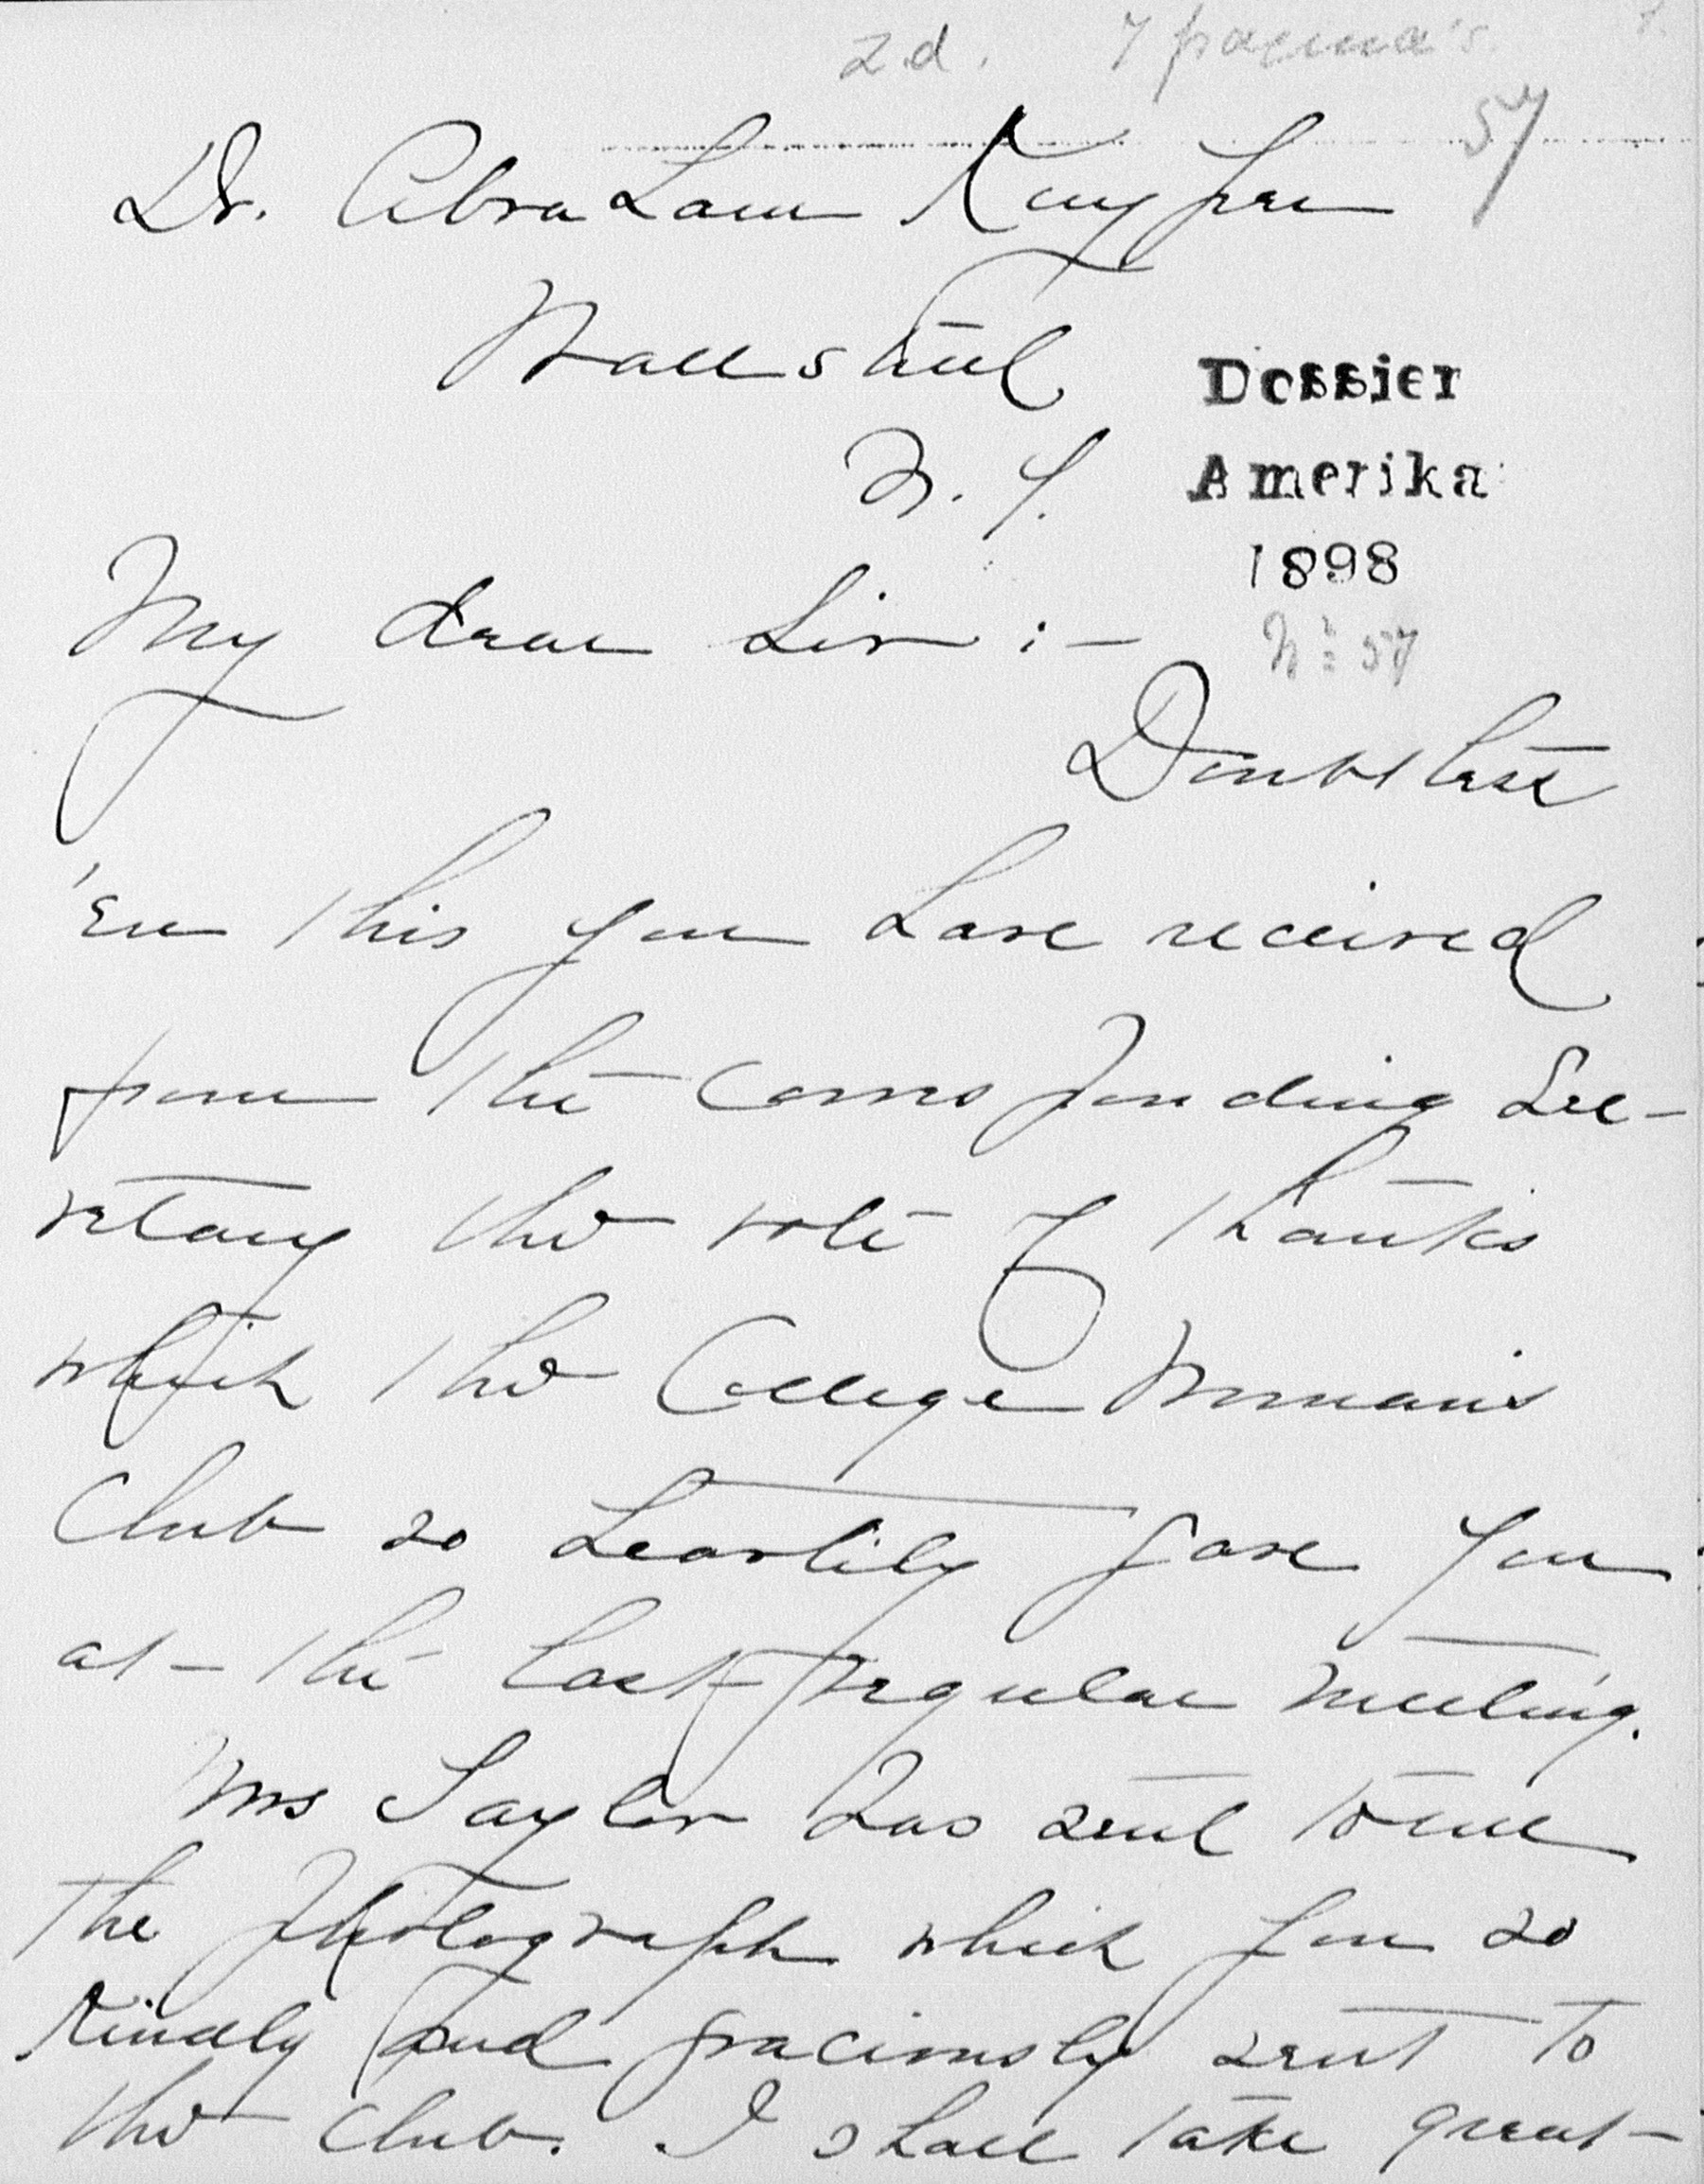 z.d. 7 pagina's. 1.
57
Dr. Abraham Kuyper
Wall Street
N. Y.
Dossier
Amerika
1898
No 57
My dear Sir :-
Doubtless
'ere this you have received
from the Corresponding Sec-
retary the vote of thanks
which the College Woman's
Club so heartily gave you
at the last regular meeting.
Mrs Taylor has sent to me
the photograph which you so
kindly and graciously sent to
the Club. I shall take great